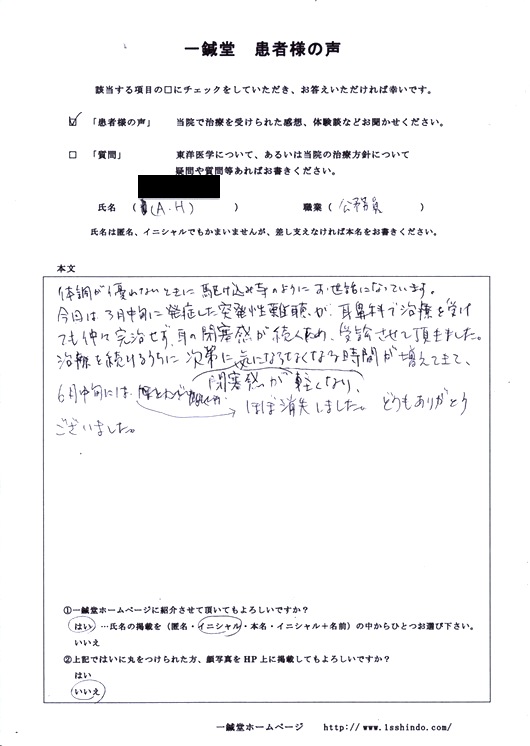 一鍼堂 患者様の声
該当する項目の□にチェックをしていただき、お答えいただければ幸いです。
☑ 「患者様の声」 当院で治療を受けられた感想、体験談などお聞かせください。
□ 「質問」 東洋医学について、あるいは当院の治療方針について
疑問や質問等あればお書きください。
氏名 ( (A.H) ) 職業 ( 公務員 )
氏名は匿名、イニシャルでもかまいませんが、差し支えなければ本名をお書きください。
本文
体調が優れないときに駆け込み寺のようにお世話になっています。
今回は、3月中旬に発症した突発性難聴が、耳鼻科で治療を受け
ても仲々完治せず、耳の閉塞感が続くため、受診させて頂きました。
治療を続けるうちに次第に気にならなくなる時間が増えてきて、
6月中旬には、閉塞感が軽くなり、
ほぼ消失しました。どうもありがとう
ございました。
①一鍼堂ホームページに紹介させて頂いてもよろしいですか?
はい …氏名の掲載を(匿名・イニシャル・本名・イニシャル+名前)の中からひとつお選び下さい。
いいえ
②上記ではいに丸をつけられた方、顔写真をHP上に掲載してもよろしいですか?
はい
いいえ
一鍼堂ホームページ http://www.1sshindo.com/